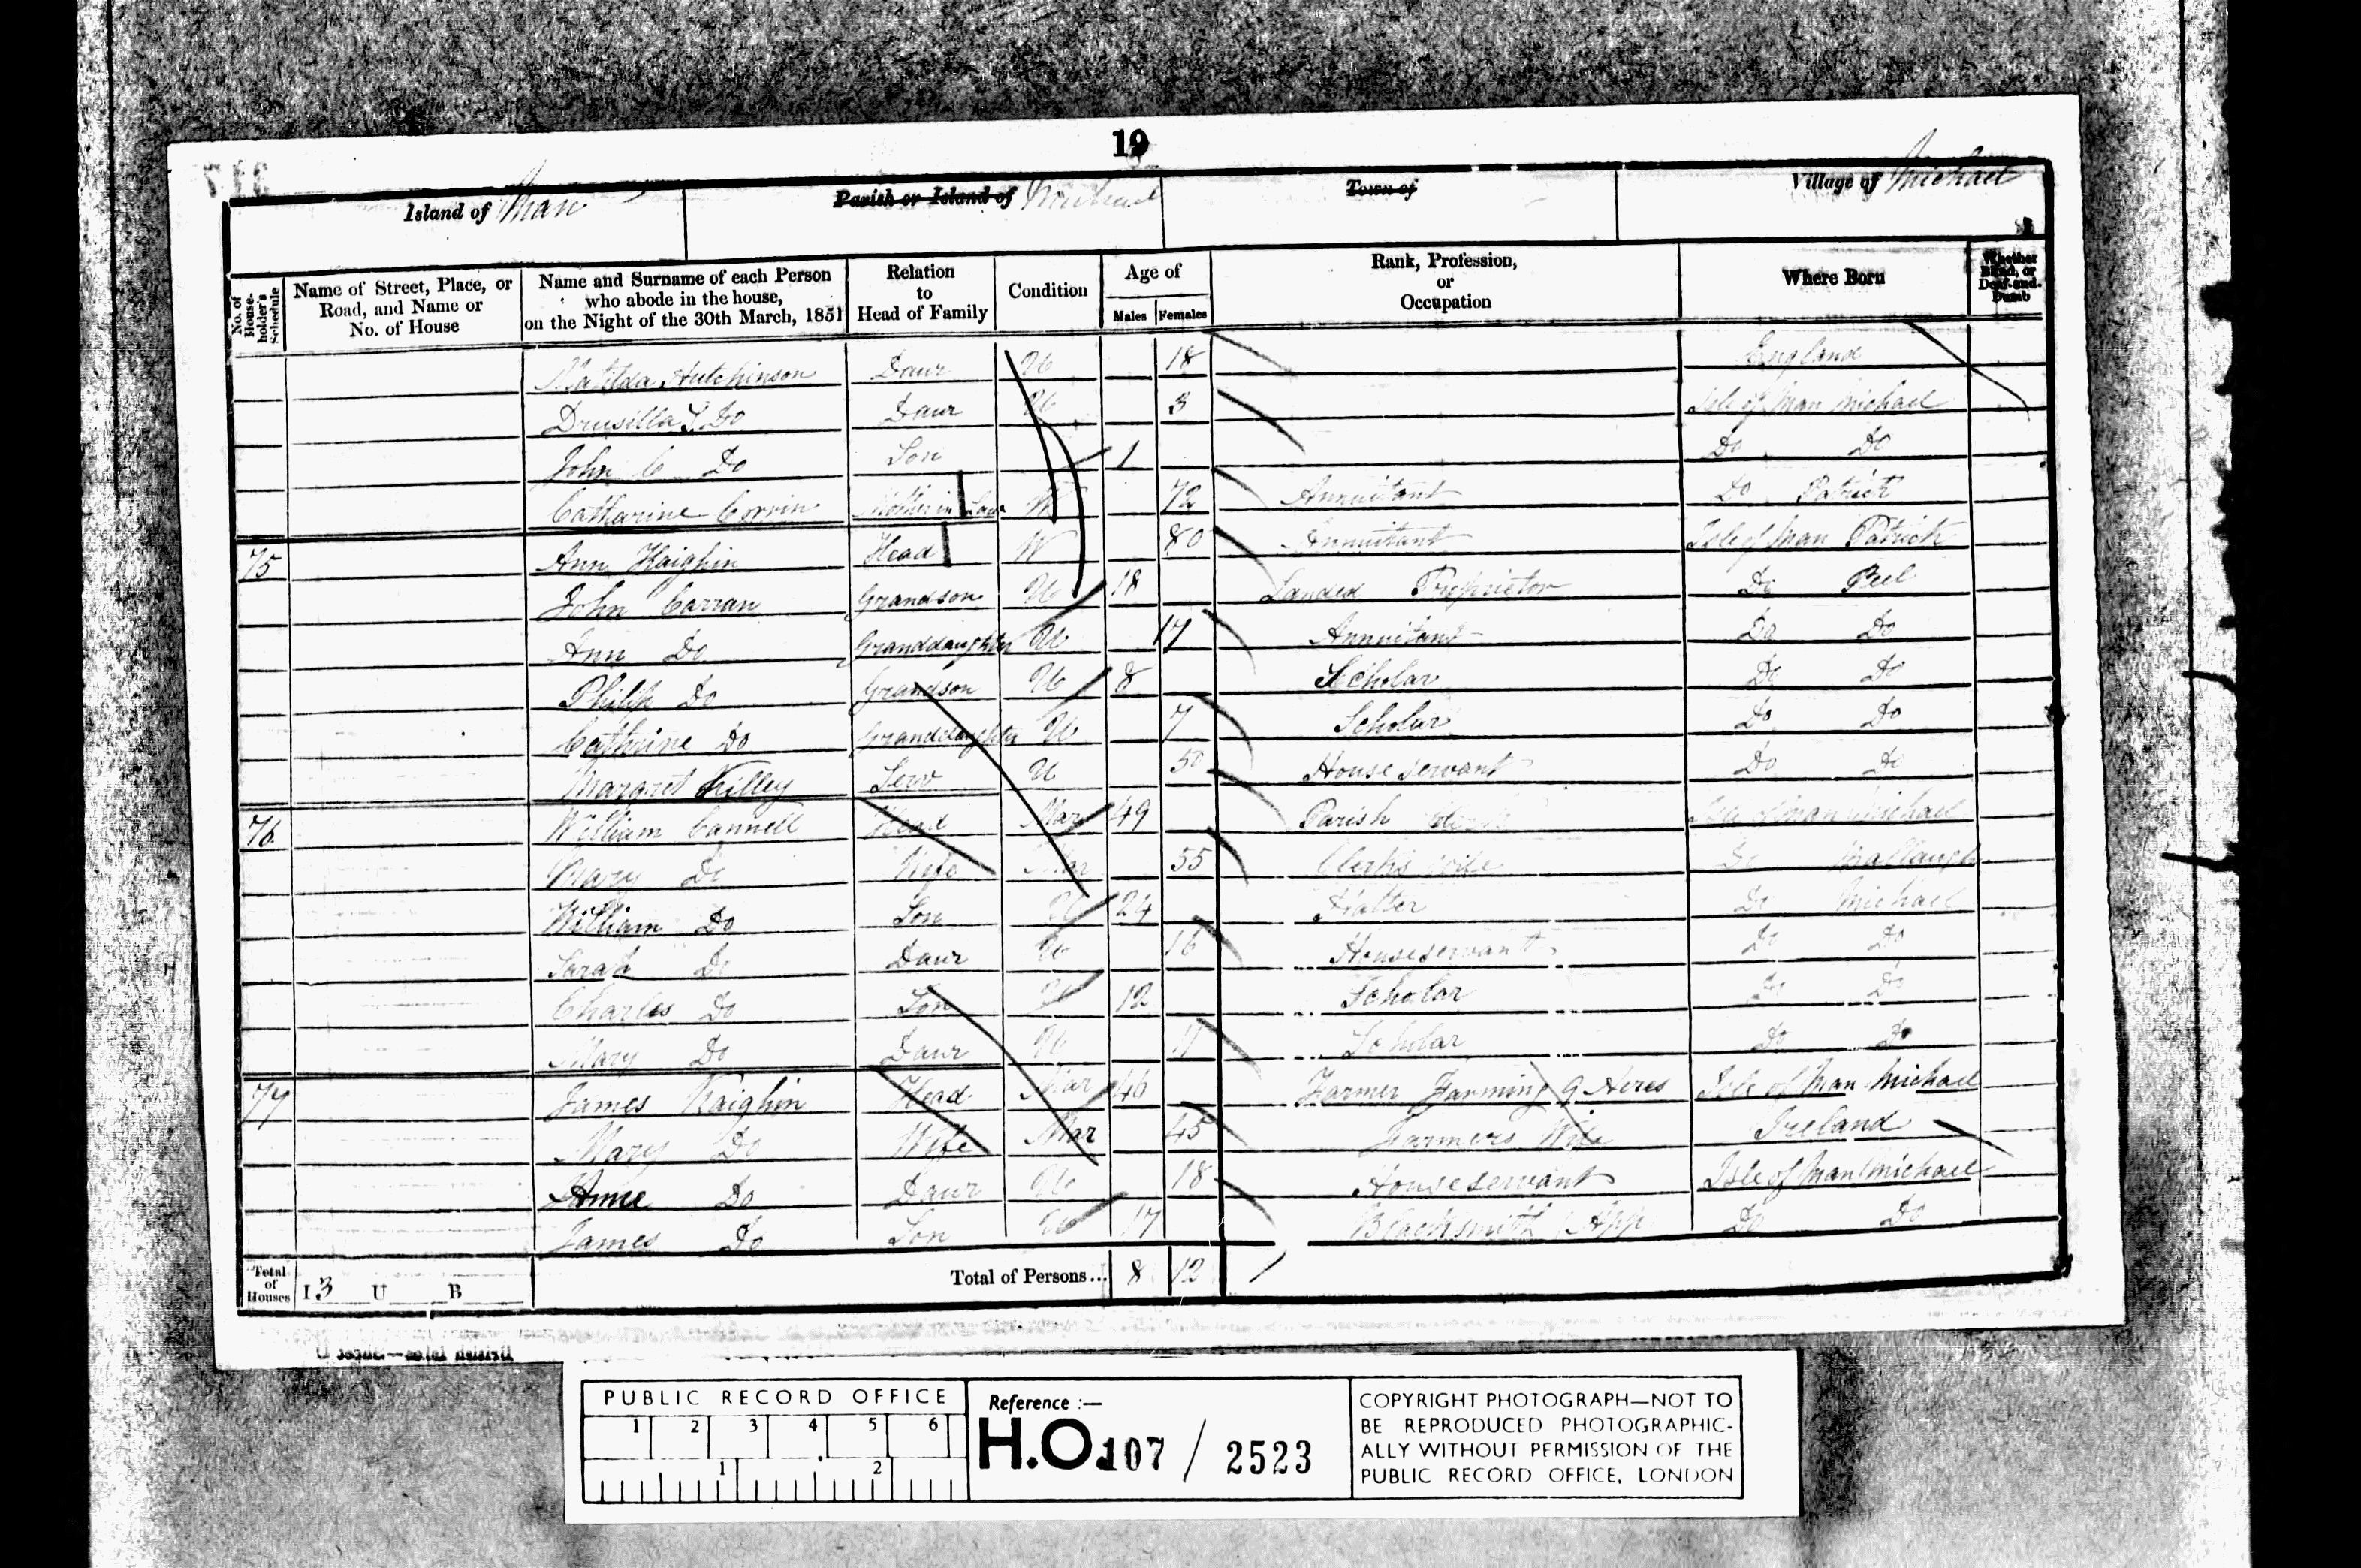 19
Island of Man Parish or Island of Michael Town of Village of Michael
No. of House-holder's Schedule
Name of Street, Place, or Road, and Name or No. of House
Name and Surname of each Person who abode in the house, on the Night of the 30th March, 1851
Relation to Head of Family
Condition
Age of
Males Females
Rank, Profession, or Occupation
Where Born
Whether Blind, or Deaf-and-Dumb
Matilda Hutchinson Daur U 18 England
Drusilla Do Daur U 3 Isle of Man Michael
John C Do Son 1 Do Do
Catharine Corrin Mother in Law W 72 Annuitant Do Patrick
75 Ann Kaighin Head W 80 Annuitant Isle of Man Patrick
John Carran Grandson U 18 Landed Proprietor Do Peel
Ann Do Granddaughter U 17 Annuitant Do Do
Philip Do Grandson U 8 Scholar Do Do
Cathrine Do Granddaughter U 7 Scholar Do Do
Margret Killey Serv U 50 House servant Do Do
76 William Cannell Head Mar 49 Parish Clerk Isle of Man Michael
Mary Do Wife Mar 55 Clerks wife Do Ballaugh
William Do Son U 24 Hatter Do Michael
Sarah Do Daur U 16 Houseservant Do Do
Charles Do Son U 12 Scholar Do Do
Mary Do Daur U 11 Scholar Do Do
77 James Kaighin Head Mar 46 Farmer Farming 9 Acres Isle of Man Michael
Mary Do Wife Mar 45 Farmers Wife Ireland
Anne Do Daur U 18 Houseservant Isle of Man Michael
James Do Son U 17 Blacksmith App Do Do
Total of Houses I 3 U B Total of Persons... 8 12
PUBLIC RECORD OFFICE
1 2 3 4 5 6
1 2
Reference :—
H.O. 107 / 2523
COPYRIGHT PHOTOGRAPH—NOT TO
BE REPRODUCED PHOTOGRAPHIC-
ALLY WITHOUT PERMISSION OF THE
PUBLIC RECORD OFFICE, LONDON